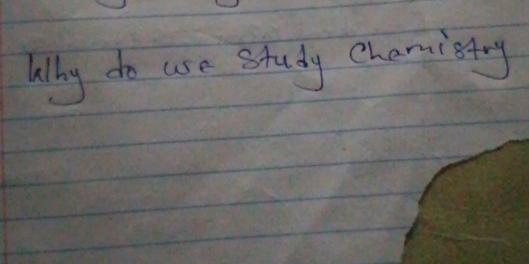 Why do we study Chemistry